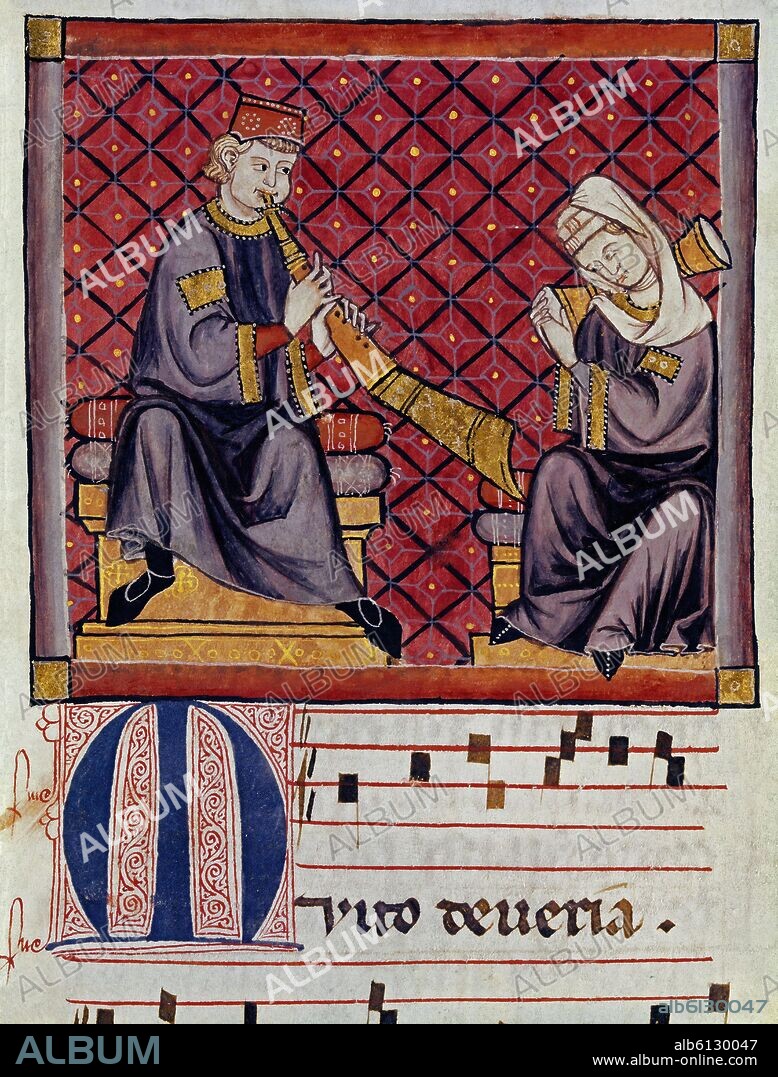 Muito deueria.
ALBUM
alb6130047
www.album-online.com